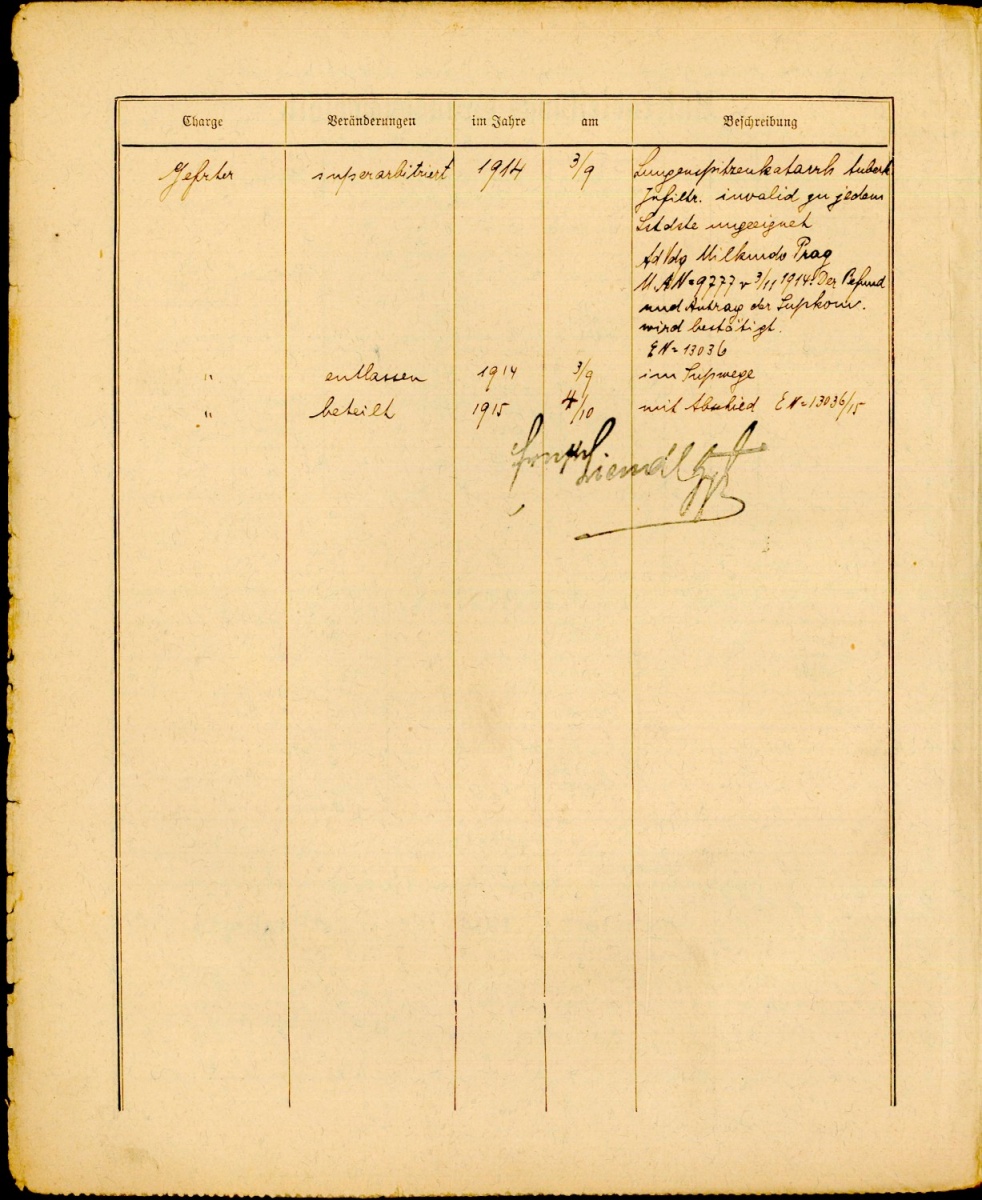 Charge Veränderungen im Jahre am Beschreibung
Gefrter superarbitriert 1914 3/9 Lungenspitzenkatarrh tuberk
Infiltr. invalid zu jedem
Lstdste ungeeignet
Milkmdo Prag
M.A.N=9777 v 3/11 1914: Der Befund
und Antrag der Supkom.
wird bestätigt.
EN=13036
" entlassen 1914 3/9 im Supwege
" beteilt 1915 4/10 mit Abschied EN=13036/15